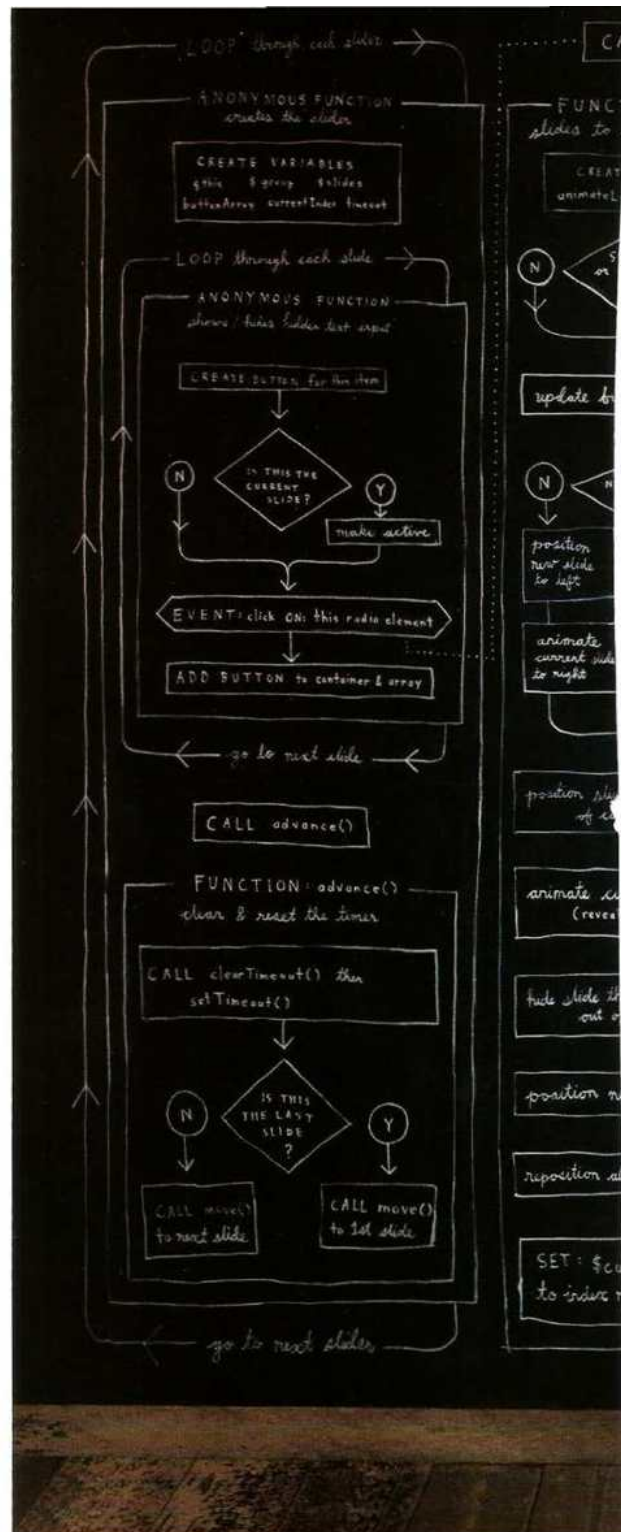 LOOP through each slider
ANONYMOUS FUNCTION
creates the slider
CREATE VARIABLES
$this $group $slides
buttonArray currentIndex timeout
LOOP through each slide
ANONYMOUS FUNCTION
shows/hides hidden text input
CREATE BUTTON for this item
IS THIS THE
CURRENT
SLIDE?
N
Y
make active
EVENT: click ON: this radio element
ADD BUTTON to container & array
go to next slide
CALL advance()
FUNCTION: advance()
clear & reset the timer
CALL clearTimeout() then
setTimeout()
IS THIS
THE LAST
SLIDE
?
N
Y
CALL move()
to next slide
CALL move()
to 1st slide
go to next slider
CA
FUNCT
slides to
CREAT
animateL
N
S
or
update bu
N
N
position
new slide
to left
animate
current slide
to right
position slid
of cu
animate cu
(reveal
hide slide th
out o
position n
reposition al
SET: $cu
to index n